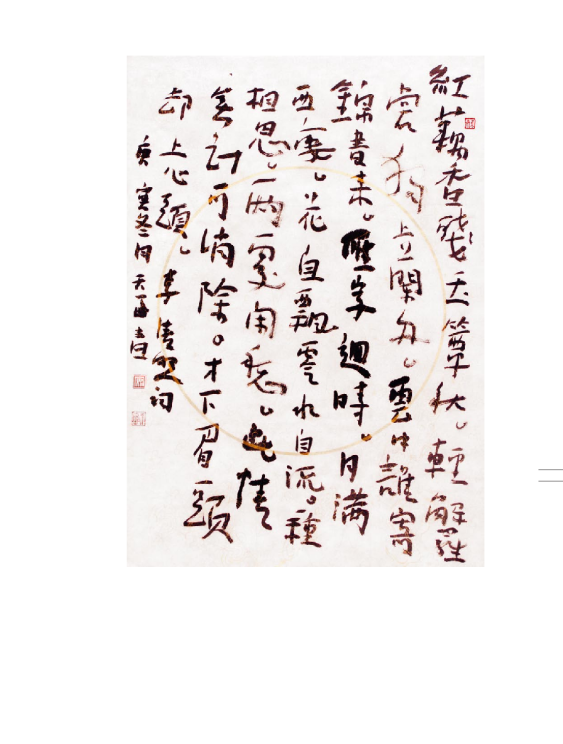 紅藕香殘玉簟秋。輕解羅
裳獨上蘭舟。雲中誰寄
錦書来。雁字迴時。月滿
西樓。花自飄零水自流。種
相思。一兩處闲愁。此情
無計可消除。才下眉頭
却上心頭。李清照词
庚寅冬月天